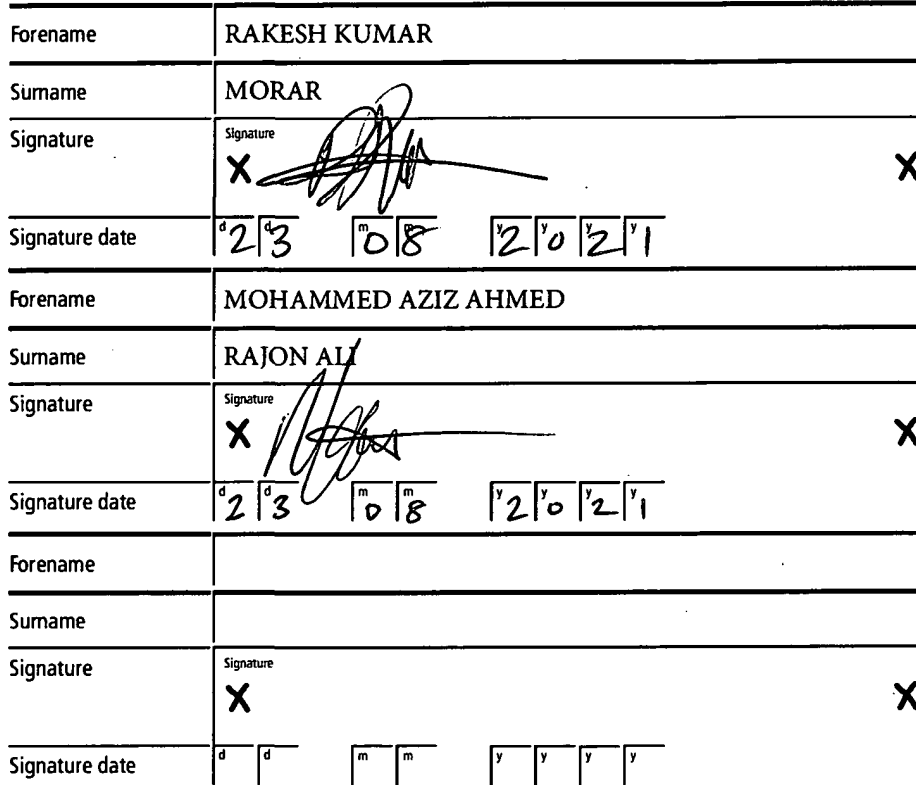 Forename RAKESH KUMAR
Surname MORAR
Signature Signature
X X
Signature date d2 d3 m0 m8 y2 y0 y2 y1
Forename MOHAMMED AZIZ AHMED
Surname RAJON ALI
Signature Signature
X X
Signature date d2 d3 m0 m8 y2 y0 y2 y1
Forename
Surname
Signature Signature
X X
Signature date d d m m y y y y